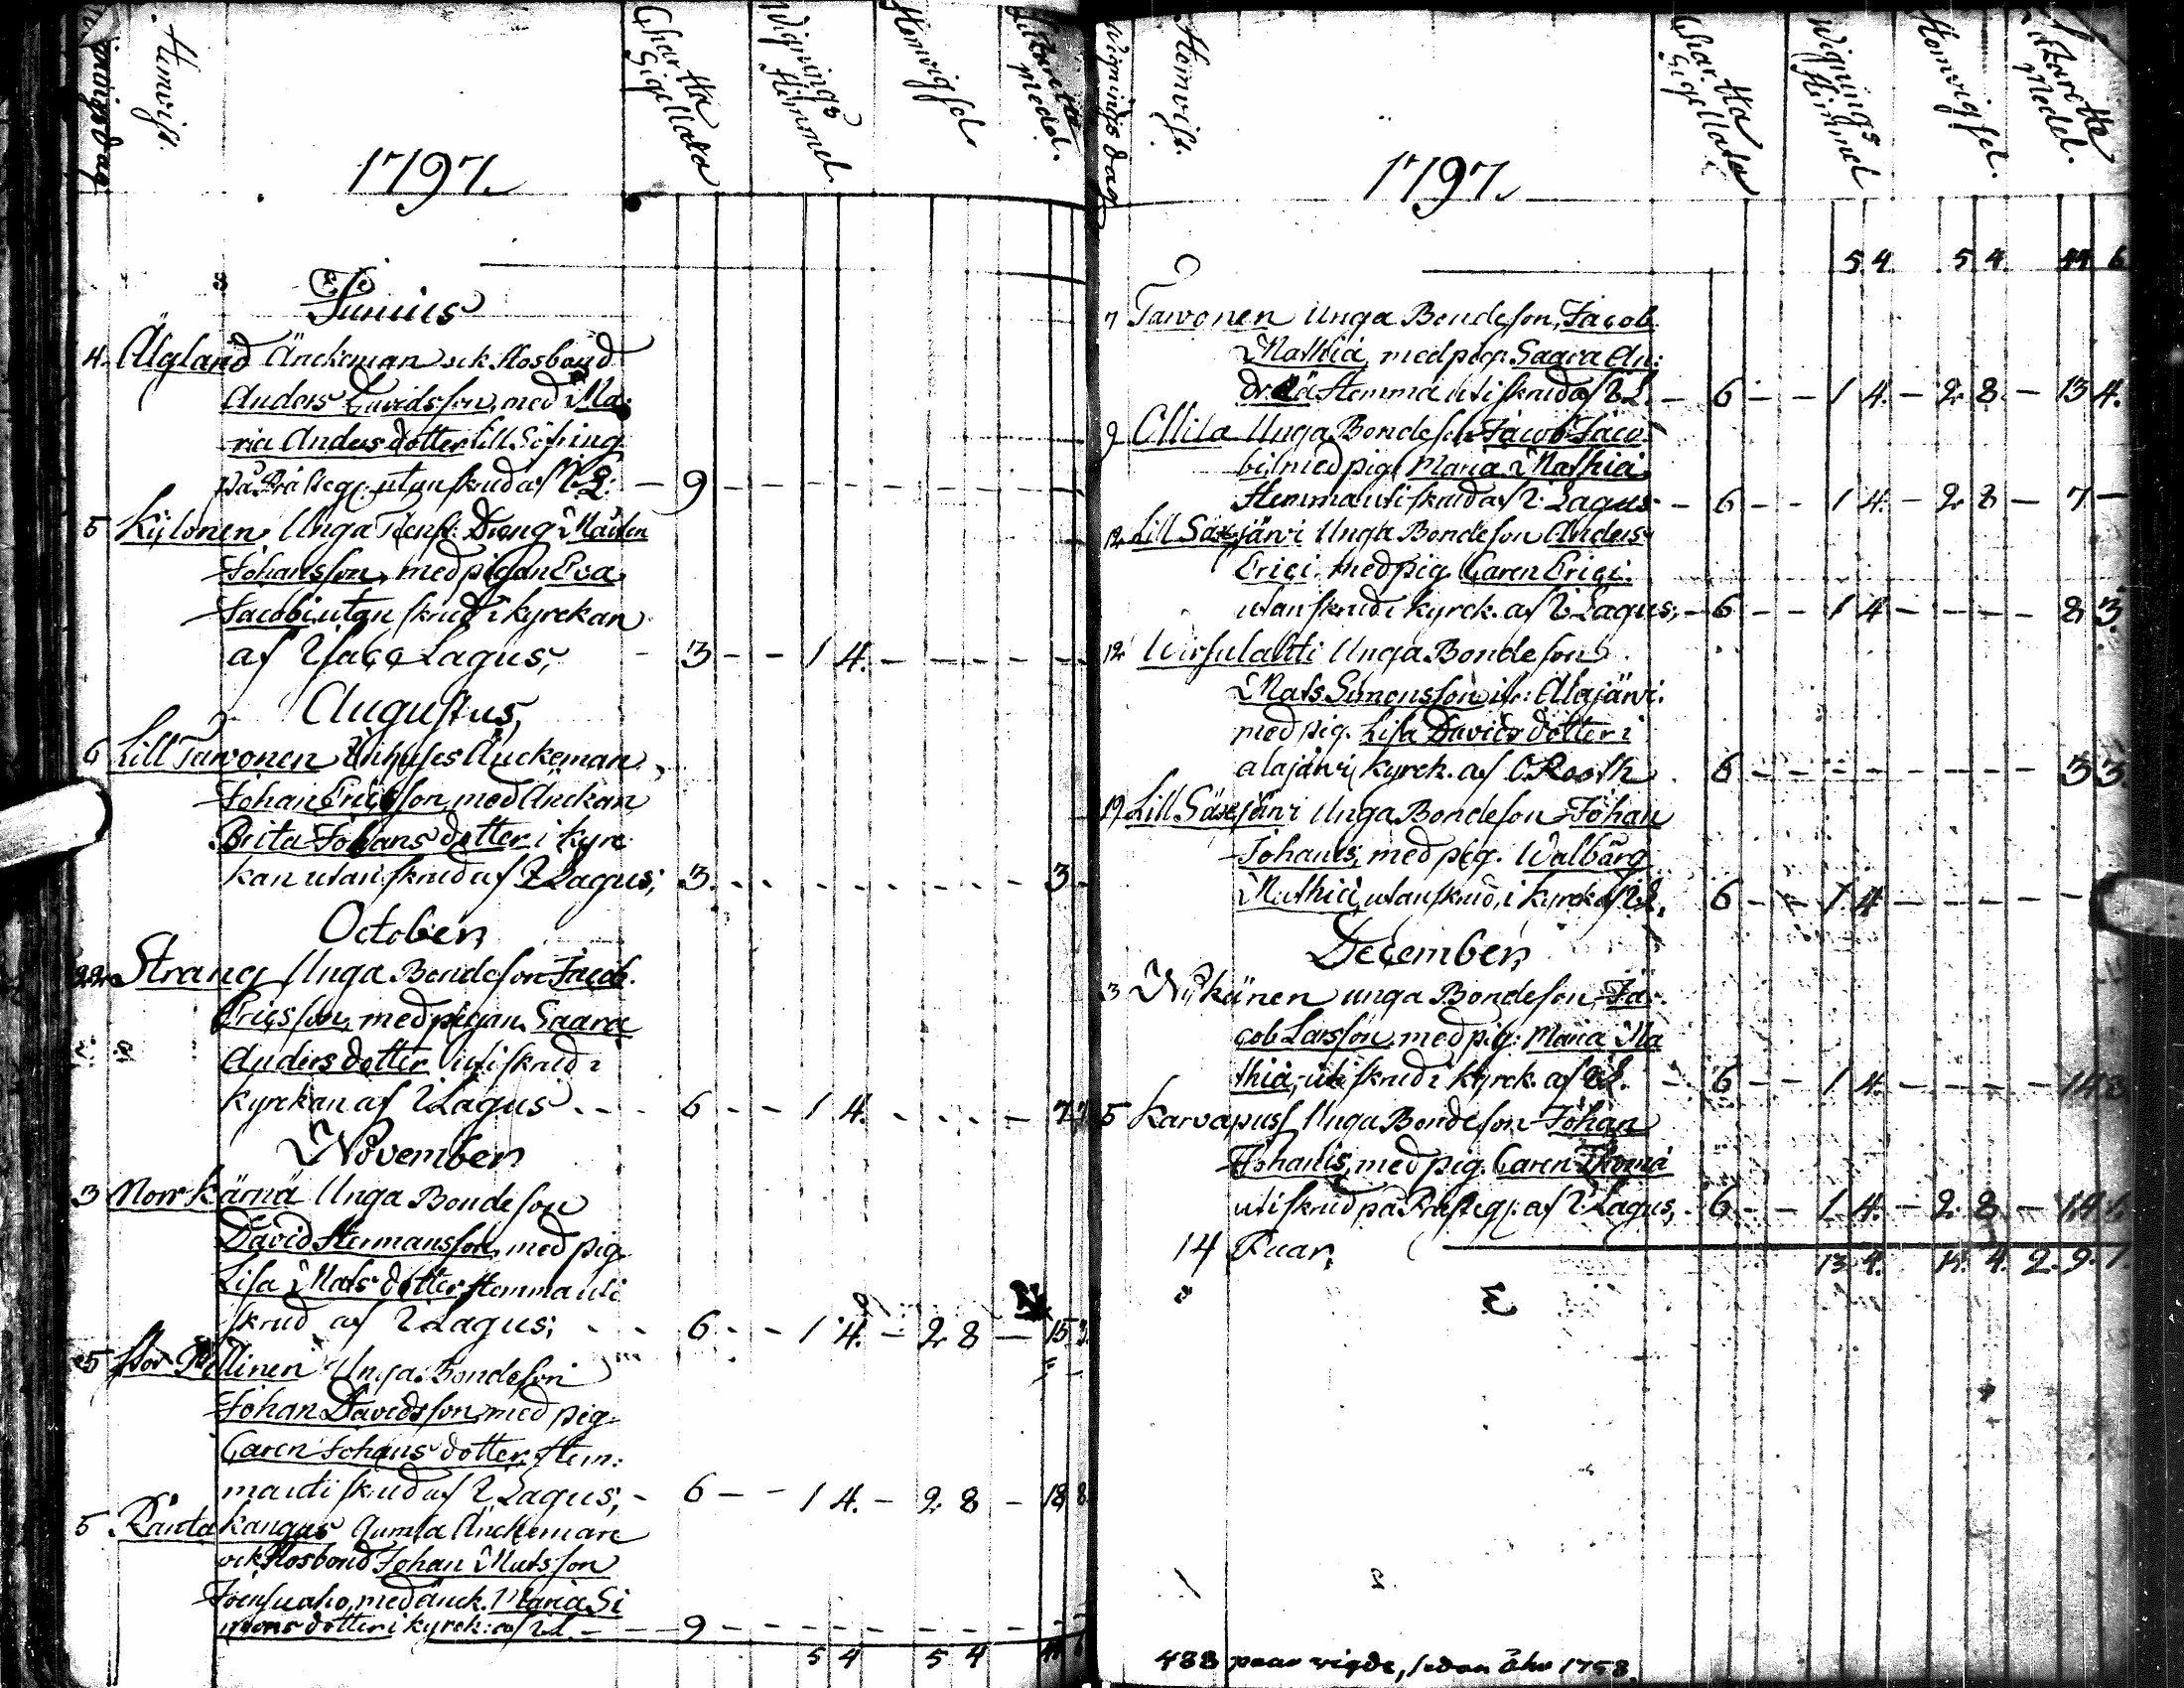 Hemvist.
Chartta Sigillata
Wignings Stimmel
Hemvigsel
Lazaretts Medel.
1797.
Junius
4. Älgland Änckeman ock Hosbond
Anders Davidsson, med Ma:
ria Anders dotter Lill Söfring
på Prästeg: utan skrud af V. L: - 9
5 Kylonen Unga Tienst: Dräng
Johansson, med pigan Eva
Jacobi utan skrud i kyrckan
af V Lagus, - 3 - - 1 4. - - - - -
Augustus,
6 Lill Tarvonen Änckeman
Johan Ericsson, med Änckan
Brita Johans dotter i kyrc
kan utan skrud af V Lagus; 3. - - - - - - - 3
October,
22 Strang Unga Bondeson Jacob.
Ericsson, med pigan Saara
Anders dotter uti skrud i
kyrckan af V Lagus - - - 6 - - 1 4. - - - - 7
November
3 Norr Kärnä Unga Bondeson
David Hermansson, med pig.
Lisa Mats dotter, Hemma uti
skrud af V Lagus; - - 6 - - 1 4. - 2 8 - 15 3
5 Stor Pellinen Unga Bondeson
Johan Davidsson, med pig.
Caren Johans dotter, Hem:
ma uti skrud af V Lagus, - 6 - - 1 4. - 2 8 - 18 8
5 Ränta kangas Gamla Änckeman
ock Hosbond Johan Matsson
med änck. Maria Si
mons dotter i kyrck: af V L. - - 9 - - - - - - - -
5 4 5 4
Wignings dag
Hemvist.
Chartta Sigillata
Wignings Stimmel
Hemvigsel.
Lazaretts Medel.
1797.
5 4. 5 4. 44 6
7 Tarvonen Unga Bondeson, Jacob
Mathiæ, med pig. Saara An:
dreæ Hemma uti skrud af V L. - 6 - - 1 4. - 2 8 - 13 4.
9 Ollila Unga Bondeson Jacob Jaco:
bi, med pig. Maria Mathiæ
Hemma uti skrud af V: Lagus - 6 - - 1 4. - 2 8 - 7 -
12 Lill Säxjärvi Unga Bondeson Anders
Erici. med pig. Caren Erici.
utan skrud i kyrck. af V Lagus, - 6 - - 1 4 - - - - 2 3.
12 Wirsulahti Unga Bondeson
Mats Simonsson ifr: Alajärvi.
med pig. Lisa Davids dotter i
alajärvi kyrck. af C Rooth 6 - - - - - - - - 3 3.
19 Lill Säxjärvi Unga Bondeson Johan
Johanis, med pig. Walbärg
Mathiæ, utan skrud, i kyrck af V L. 6 - - 1 4 - - - - -
December,
3 Nykänen unga Bondeson, Ja:
cob Larsson, med pig: Maria Ma
thiæ, uti skrud i kyrck. af V L. - 6 - - 1 4. - - - - - 14
5 Karvapus Unga Bondeson Johan
Johanis, med pig. Caren Thomæ
uti skrud på Prästeg: af V. Lagus, - 6 - - 1 4. - 2 8 - 14 6
14 Paar, 13 4. 14. 4. 2. 9. 1.
488 paar vigde, sedan åhr 1758.